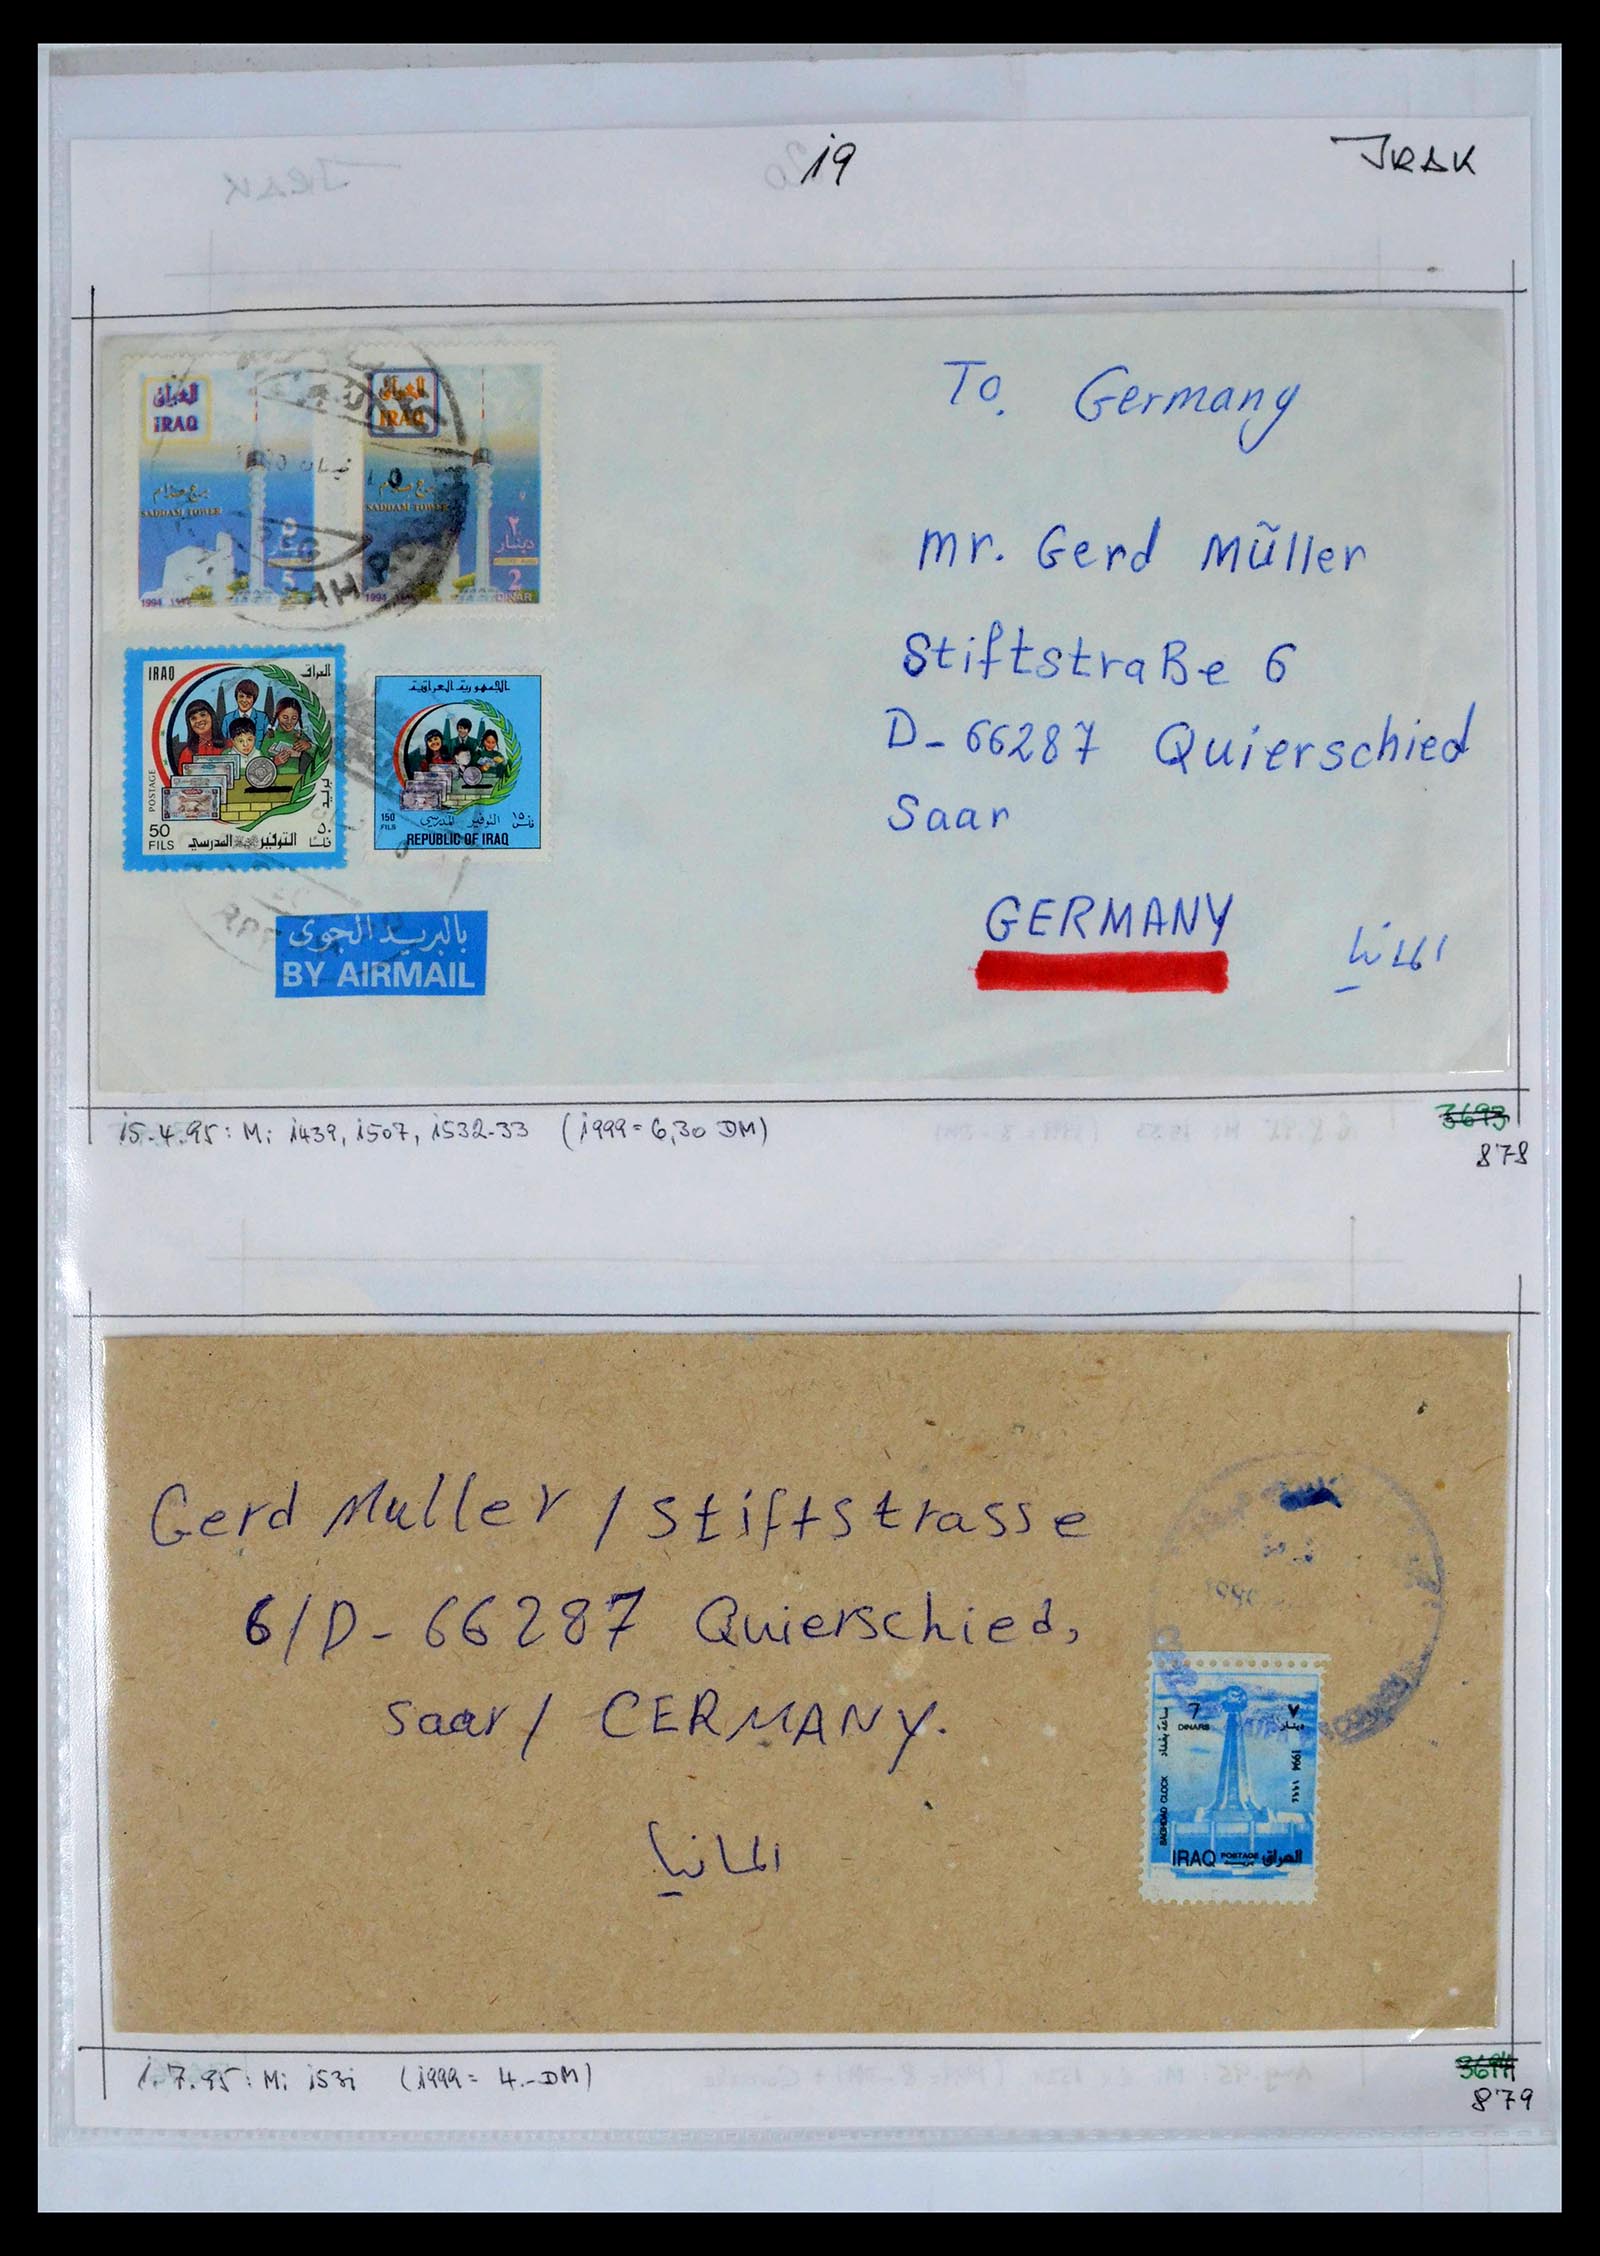 19
JRAK
العراق
IRAQ
العراق
IRAQ
برج صدام
SADDAM TOWER
برج صدام
SADDAM TOWER
٥
دينار
5
٢
دينار
2
DINAR
1994
1994
To. Germany
mr. Gerd Müller
Stiftstraße 6
D-66287 Quierschied
Saar
GERMANY
المانيا
IRAQ العراق
POSTAGE
بريد
50
FILS
٥٠
فلسا
التوفير المدرسي
الجمهورية العراقية
150
FILS
التوفير المدرسي
REPUBLIC OF IRAQ
بالبريد الجوي
BY AIRMAIL
15.4.95: Mi 1439, 1507, 1532-33 (1999 = 6,30 DM)
3693
878
Gerd Muller / Stiftstrasse
6/D-66287 Quierschied,
Saar/ GERMANY.
المانيا
7
DINARS
٧
دينار
ساعة بغداد
BAGHDAD CLOCK
1994 ١٩٩٤
IRAQ POSTAGE بريد العراق
1.7.95: Mi 1531 (1999 = 4.-DM)
3694
879